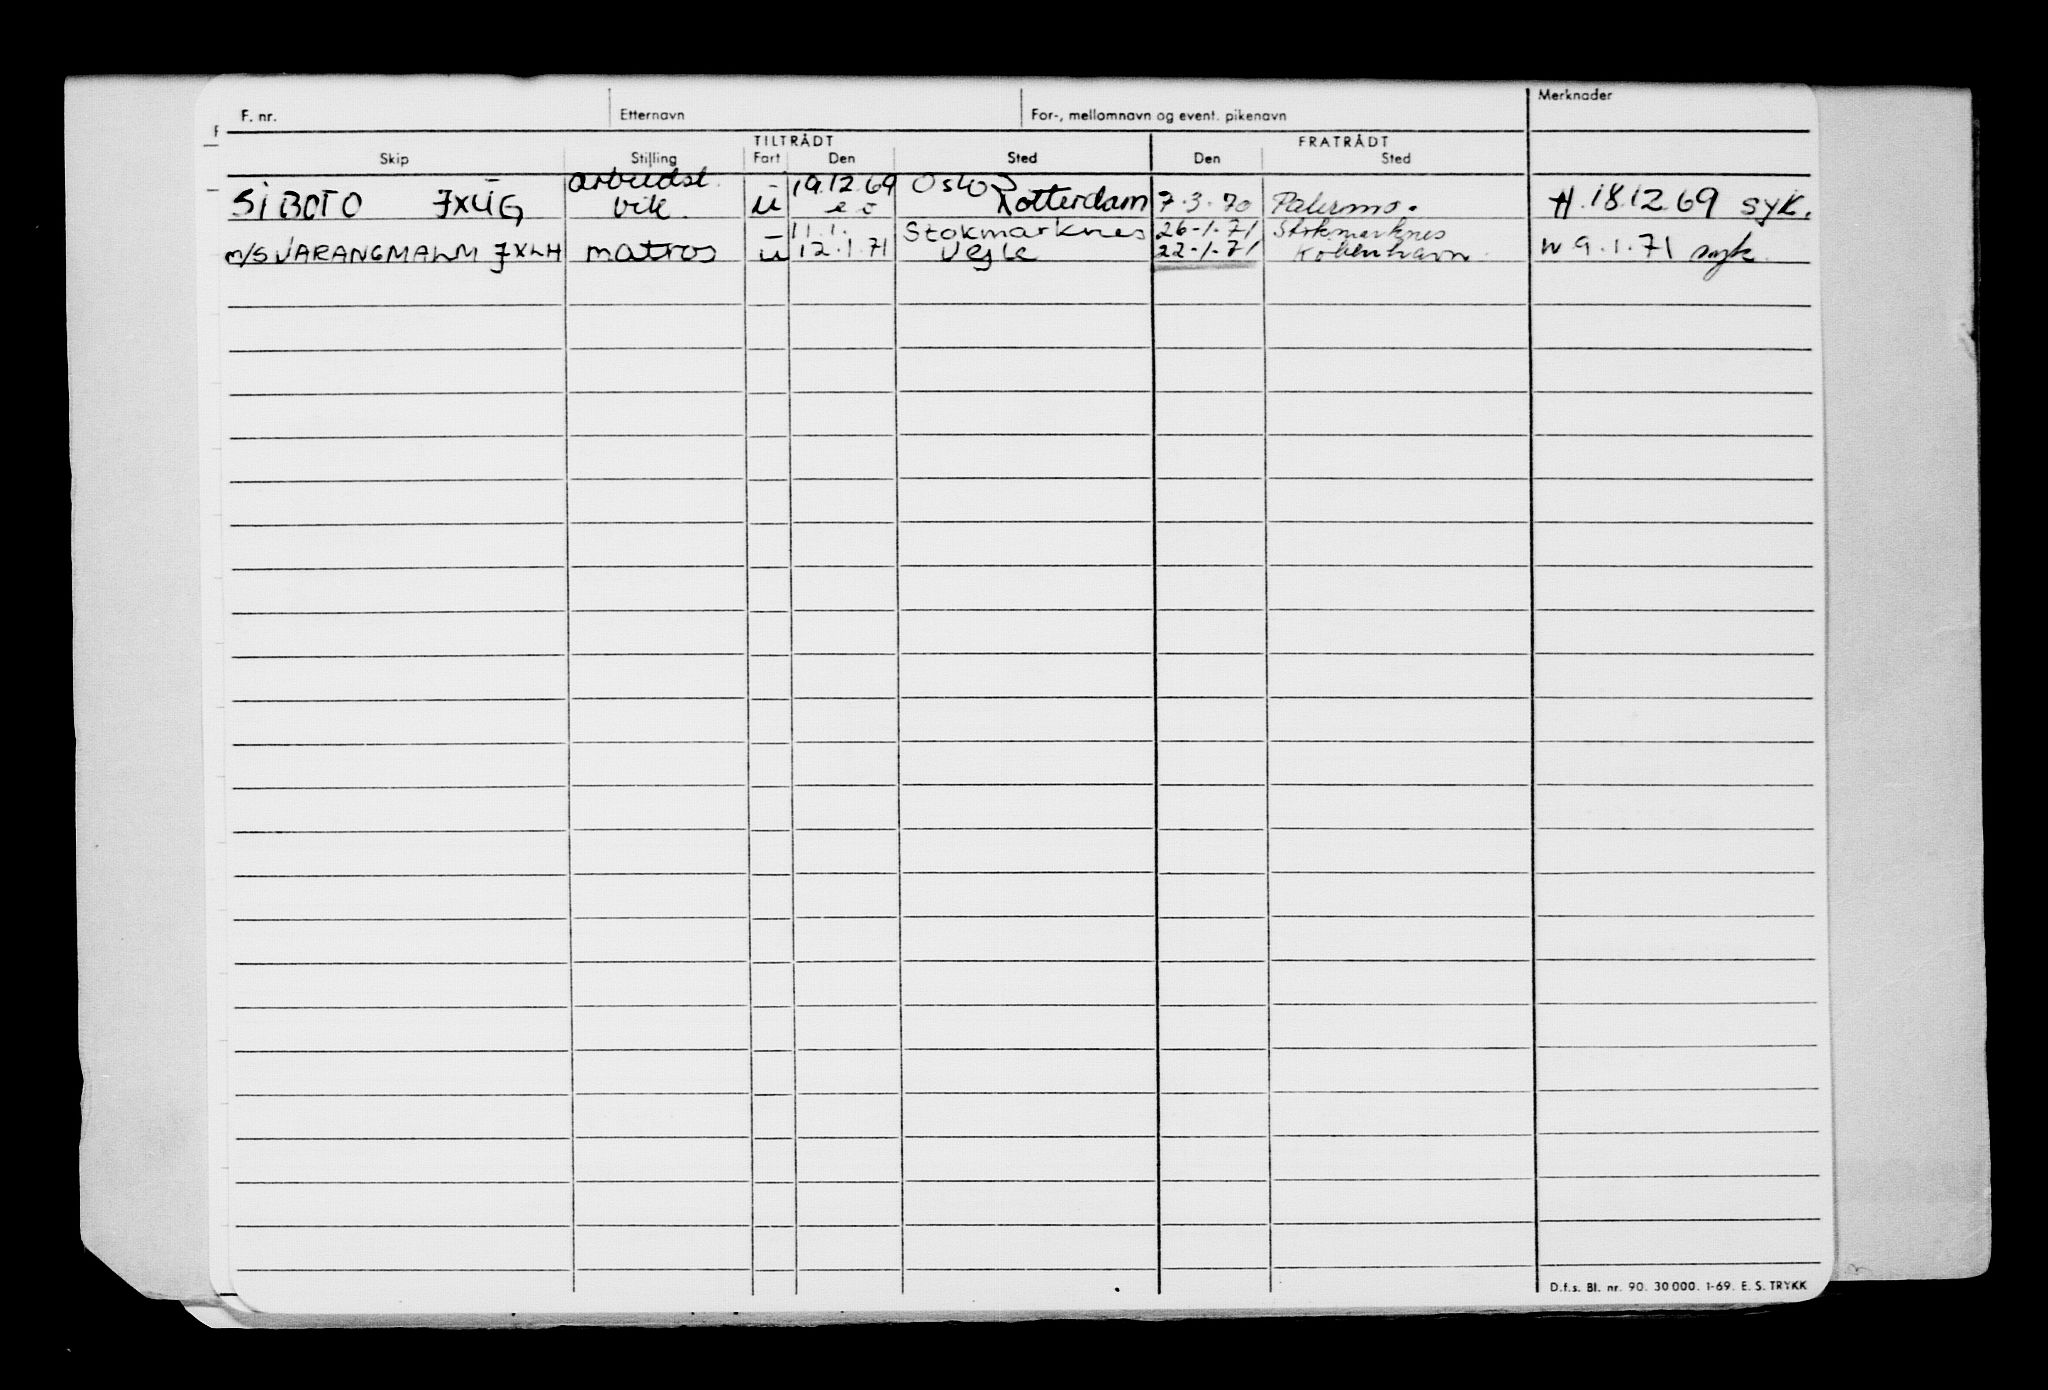 F. nr. Etternavn For-, mellomnavn og event. pikenavn Merknader
TILTRÅDT FRATRÅDT
Skip Stilling Fart Den Sted Den Sted
arbeidsl. 19.12.69 Oslo
SIBOTO JXUG vik. u Rotterdam 7.3.70 Palermo. H. 18.12.69 syk.
11.1. Stokmarknes 26-1-71 Stokmarknes
m/s VARANGMALM JXLH matros u 12.1.71 Vejle 22-1-71 København. N 9.1.71 syk.
D.f.s. Bl. nr. 90. 30 000. 1-69. E. S. TRYKK